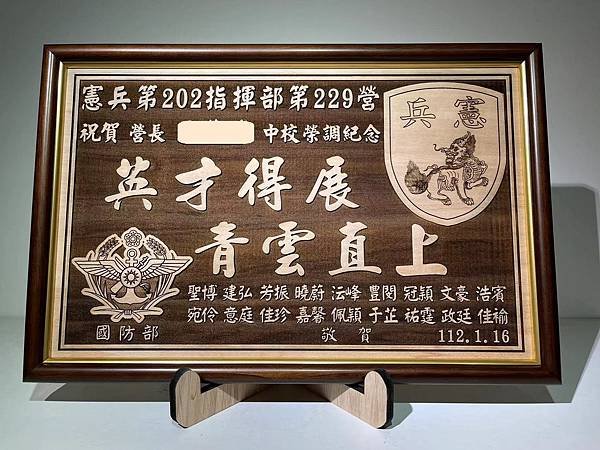 憲兵第202指揮部第229營
祝賀 營長 中校榮調紀念
兵 憲
英才得展
青雲直上
聖博 建弘 芳振 曉蔚 沄峰 豊閔 冠穎 文豪 浩賓
宛伶 意庭 佳珍 嘉馨 佩穎 于芷 祐霆 政廷 佳褕
國防部
敬賀
112.1.16